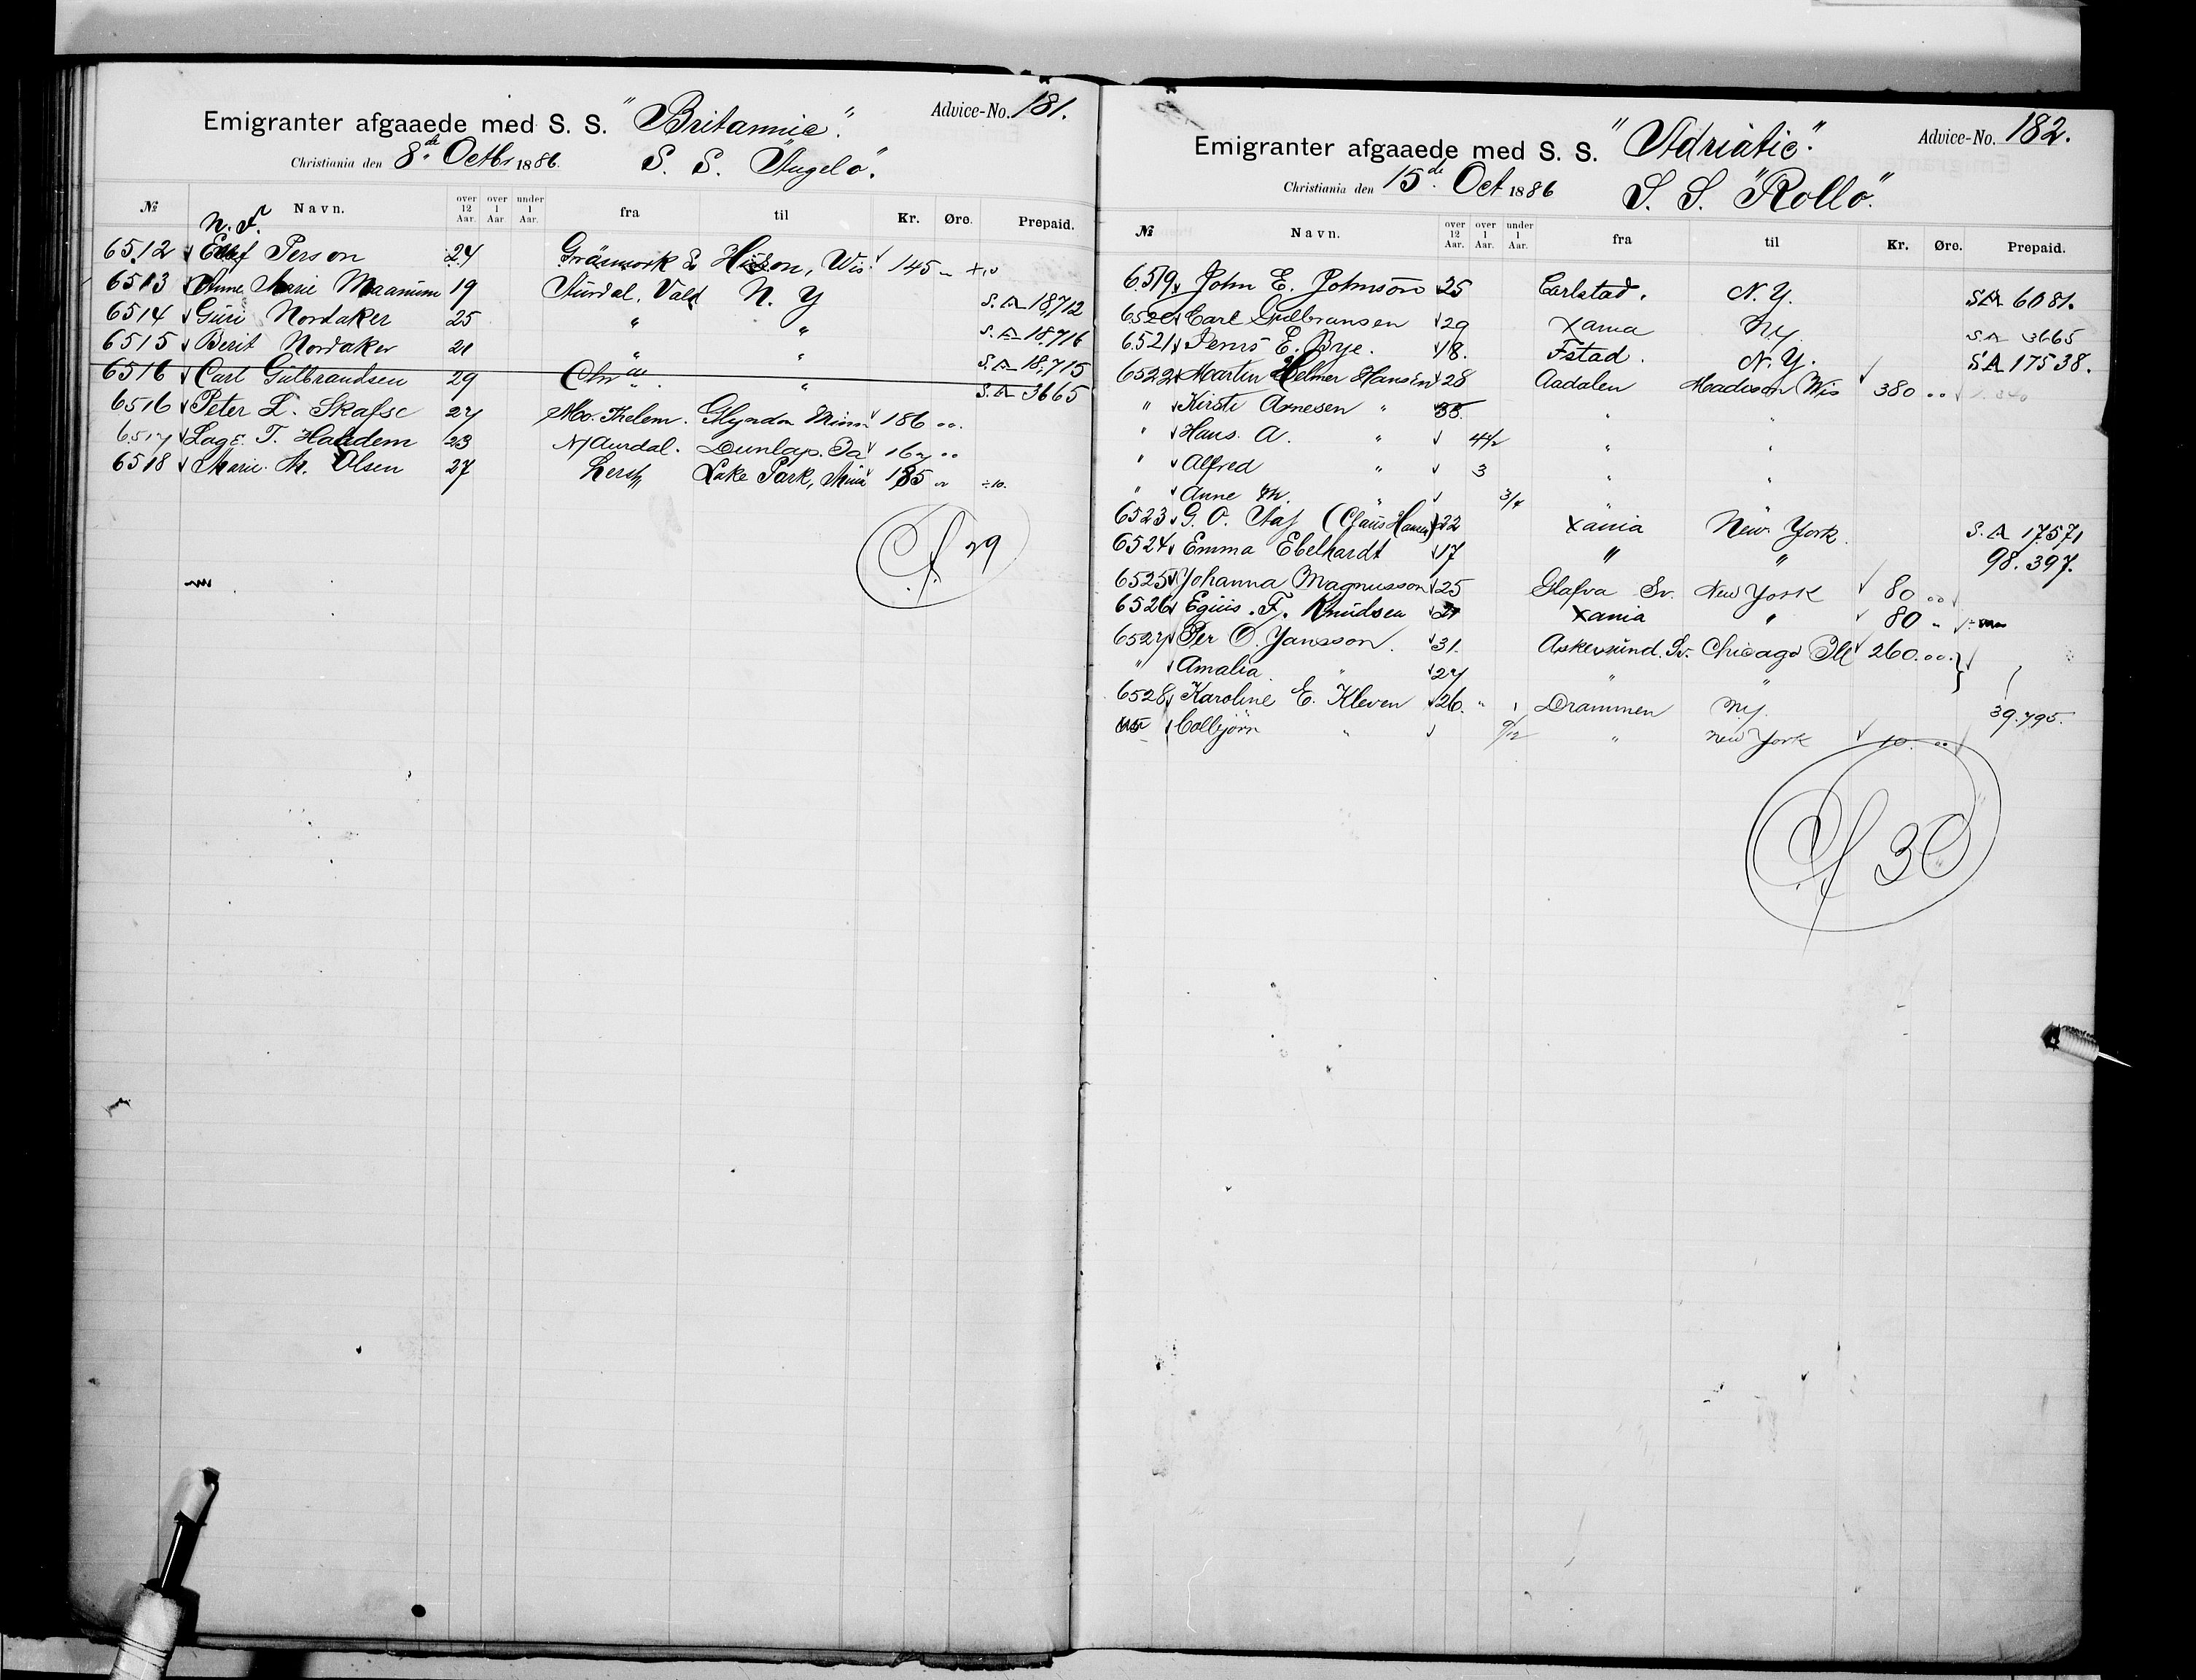 Emigranter afgaaede med S. S. "Britannic". Advice-No. 181.
Christiania den 8de Octbr 1886. S. S. "Angelo".
№ Navn. over 12 Aar. over 1 Aar under 1 Aar. fra til Kr. Øre. Prepaid.
N. F.
6512 Person 24 Wis. 145 -
6513 Anne Marie Maanum 19 Aurdal, Vald N. Y S. A 18,712
6514 Guri Nordaker 25 " " S. A 18,716
6515 Berit Nordaker 21 " " S. A 18,715
6516 Carl Gulbrandsen 29 Chr " S. A 3665
6516 Peter L. Skafse 27 Mo. Thelem. Glyndon Minn 186 "
6517 T. Haadem 23 N/Aurdal. Dunlap. 167 "
6518 Marie M. Olsen 27 Lake Park, Minn 185 " ÷10.
29
Emigranter afgaaede med S. S. "Adriatic". Advice-No. 182.
Christiania den 15de Oct 1886 S. S. "Rollo".
№ Navn. over 12 Aar. over 1 Aar. under 1 Aar. fra til Kr. Øre. Prepaid.
6519 John E. Johnson 25 Carlstad. N. Y. SA 6081.
6520 Carl Gulbransen 29 Xania NY S A 3665
6521 E. Bye. 18. Fstad. N. Y. SA 17538.
6522 Martin Helmer Hansen 28 Aadalen Madison Wis 380 "
" Kirsti Arnesen " 33. " "
" Hans. A. " 4½ " "
" Alfred " 3 " "
" Anne M. " 3/4
6523 G. O. (Claus Hansen) 22 Xania New York S. A 17571
6524 Emma Ebelhardt 17 " " 98.397.
6525 Johanna Magnusson 25 Glafva Sv. New York 80 "
6526 F. Knudsen Xania " 80 "
6527 Per O. Jansson. 31. Askersund. Sv. Chicago Ill 260. "
" Amalia " 27 " "
6528 Karoline E. Kleven 26. " 1 Drammen NY. 39.795.
Colbjörn " 9/12 " New York 10. "
30